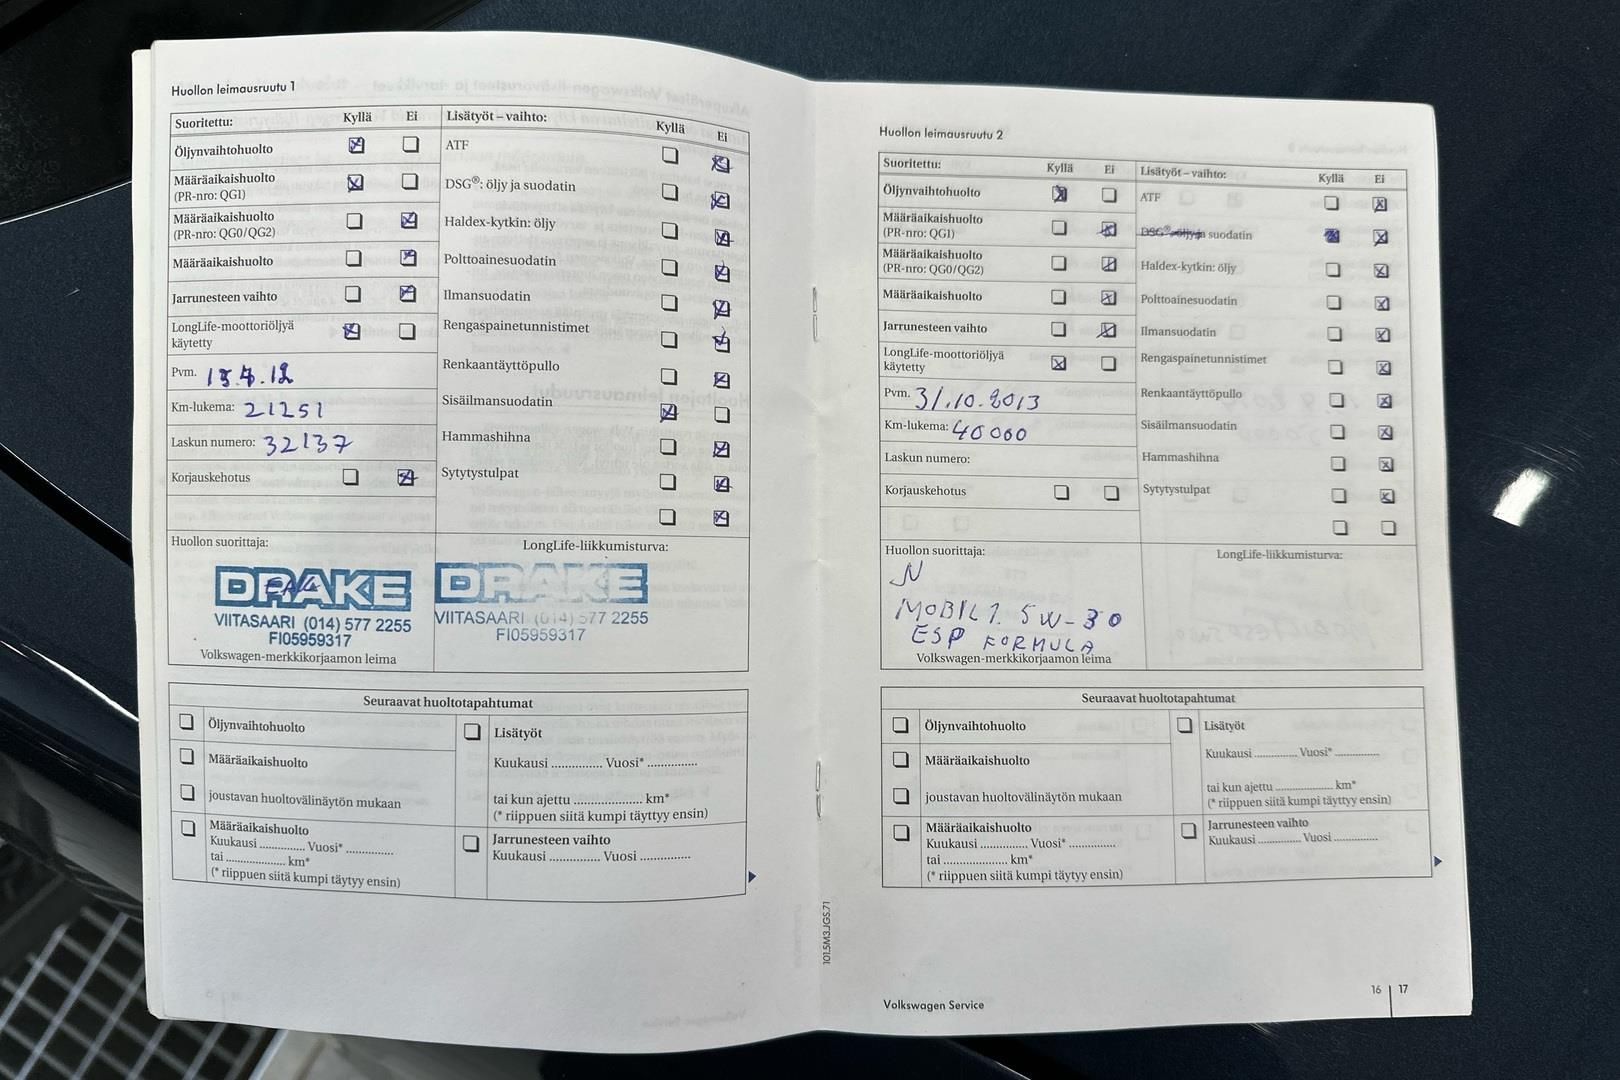 Huollon leimausruutu 1
Suoritettu: Kyllä Ei
Öljynvaihtohuolto
Määräaikaishuolto
(PR-nro: QG1)
Määräaikaishuolto
(PR-nro: QG0/QG2)
Määräaikaishuolto
Jarrunesteen vaihto
LongLife-moottoriöljyä
käytetty
Pvm.
Km-lukema: 21251
Laskun numero: 32137
Korjauskehotus
Lisätyöt – vaihto: Kyllä Ei
ATF
DSG®: öljy ja suodatin
Haldex-kytkin: öljy
Polttoainesuodatin
Ilmansuodatin
Rengaspainetunnistimet
Renkaantäyttöpullo
Sisäilmansuodatin
Hammashihna
Sytytystulpat
Huollon suorittaja:
DRAKE
VIITASAARI (014) 577 2255
FI05959317
Volkswagen-merkkikorjaamon leima
LongLife-liikkumisturva:
DRAKE
VIITASAARI (014) 577 2255
FI05959317
Seuraavat huoltotapahtumat
Öljynvaihtohuolto
Määräaikaishuolto
joustavan huoltovälinäytön mukaan
Määräaikaishuolto
Kuukausi .............. Vuosi* ..............
tai .................... km*
(* riippuen siitä kumpi täytyy ensin)
Lisätyöt
Kuukausi ............... Vuosi* ...............
tai kun ajettu ..................... km*
(* riippuen siitä kumpi täyttyy ensin)
Jarrunesteen vaihto
Kuukausi ............... Vuosi ...............
Huollon leimausruutu 2
Suoritettu: Kyllä Ei
Öljynvaihtohuolto
Määräaikaishuolto
(PR-nro: QG1)
Määräaikaishuolto
(PR-nro: QG0/QG2)
Määräaikaishuolto
Jarrunesteen vaihto
LongLife-moottoriöljyä
käytetty
Pvm. 31.10.2013
Km-lukema: 40000
Laskun numero:
Korjauskehotus
Lisätyöt – vaihto: Kyllä Ei
ATF
DSG®: öljy ja suodatin
Haldex-kytkin: öljy
Polttoainesuodatin
Ilmansuodatin
Rengaspainetunnistimet
Renkaantäyttöpullo
Sisäilmansuodatin
Hammashihna
Sytytystulpat
Huollon suorittaja:
MOBIL 1. 5W-30
ESP FORMULA
Volkswagen-merkkikorjaamon leima
LongLife-liikkumisturva:
Seuraavat huoltotapahtumat
Öljynvaihtohuolto
Määräaikaishuolto
joustavan huoltovälinäytön mukaan
Määräaikaishuolto
Kuukausi .............. Vuosi* ..............
tai .................... km*
(* riippuen siitä kumpi täytyy ensin)
Lisätyöt
Kuukausi ............... Vuosi* ...............
tai kun ajettu ..................... km*
(* riippuen siitä kumpi täyttyy ensin)
Jarrunesteen vaihto
Kuukausi ............... Vuosi ...............
101.5M3.JGS.71
Volkswagen Service
16 17